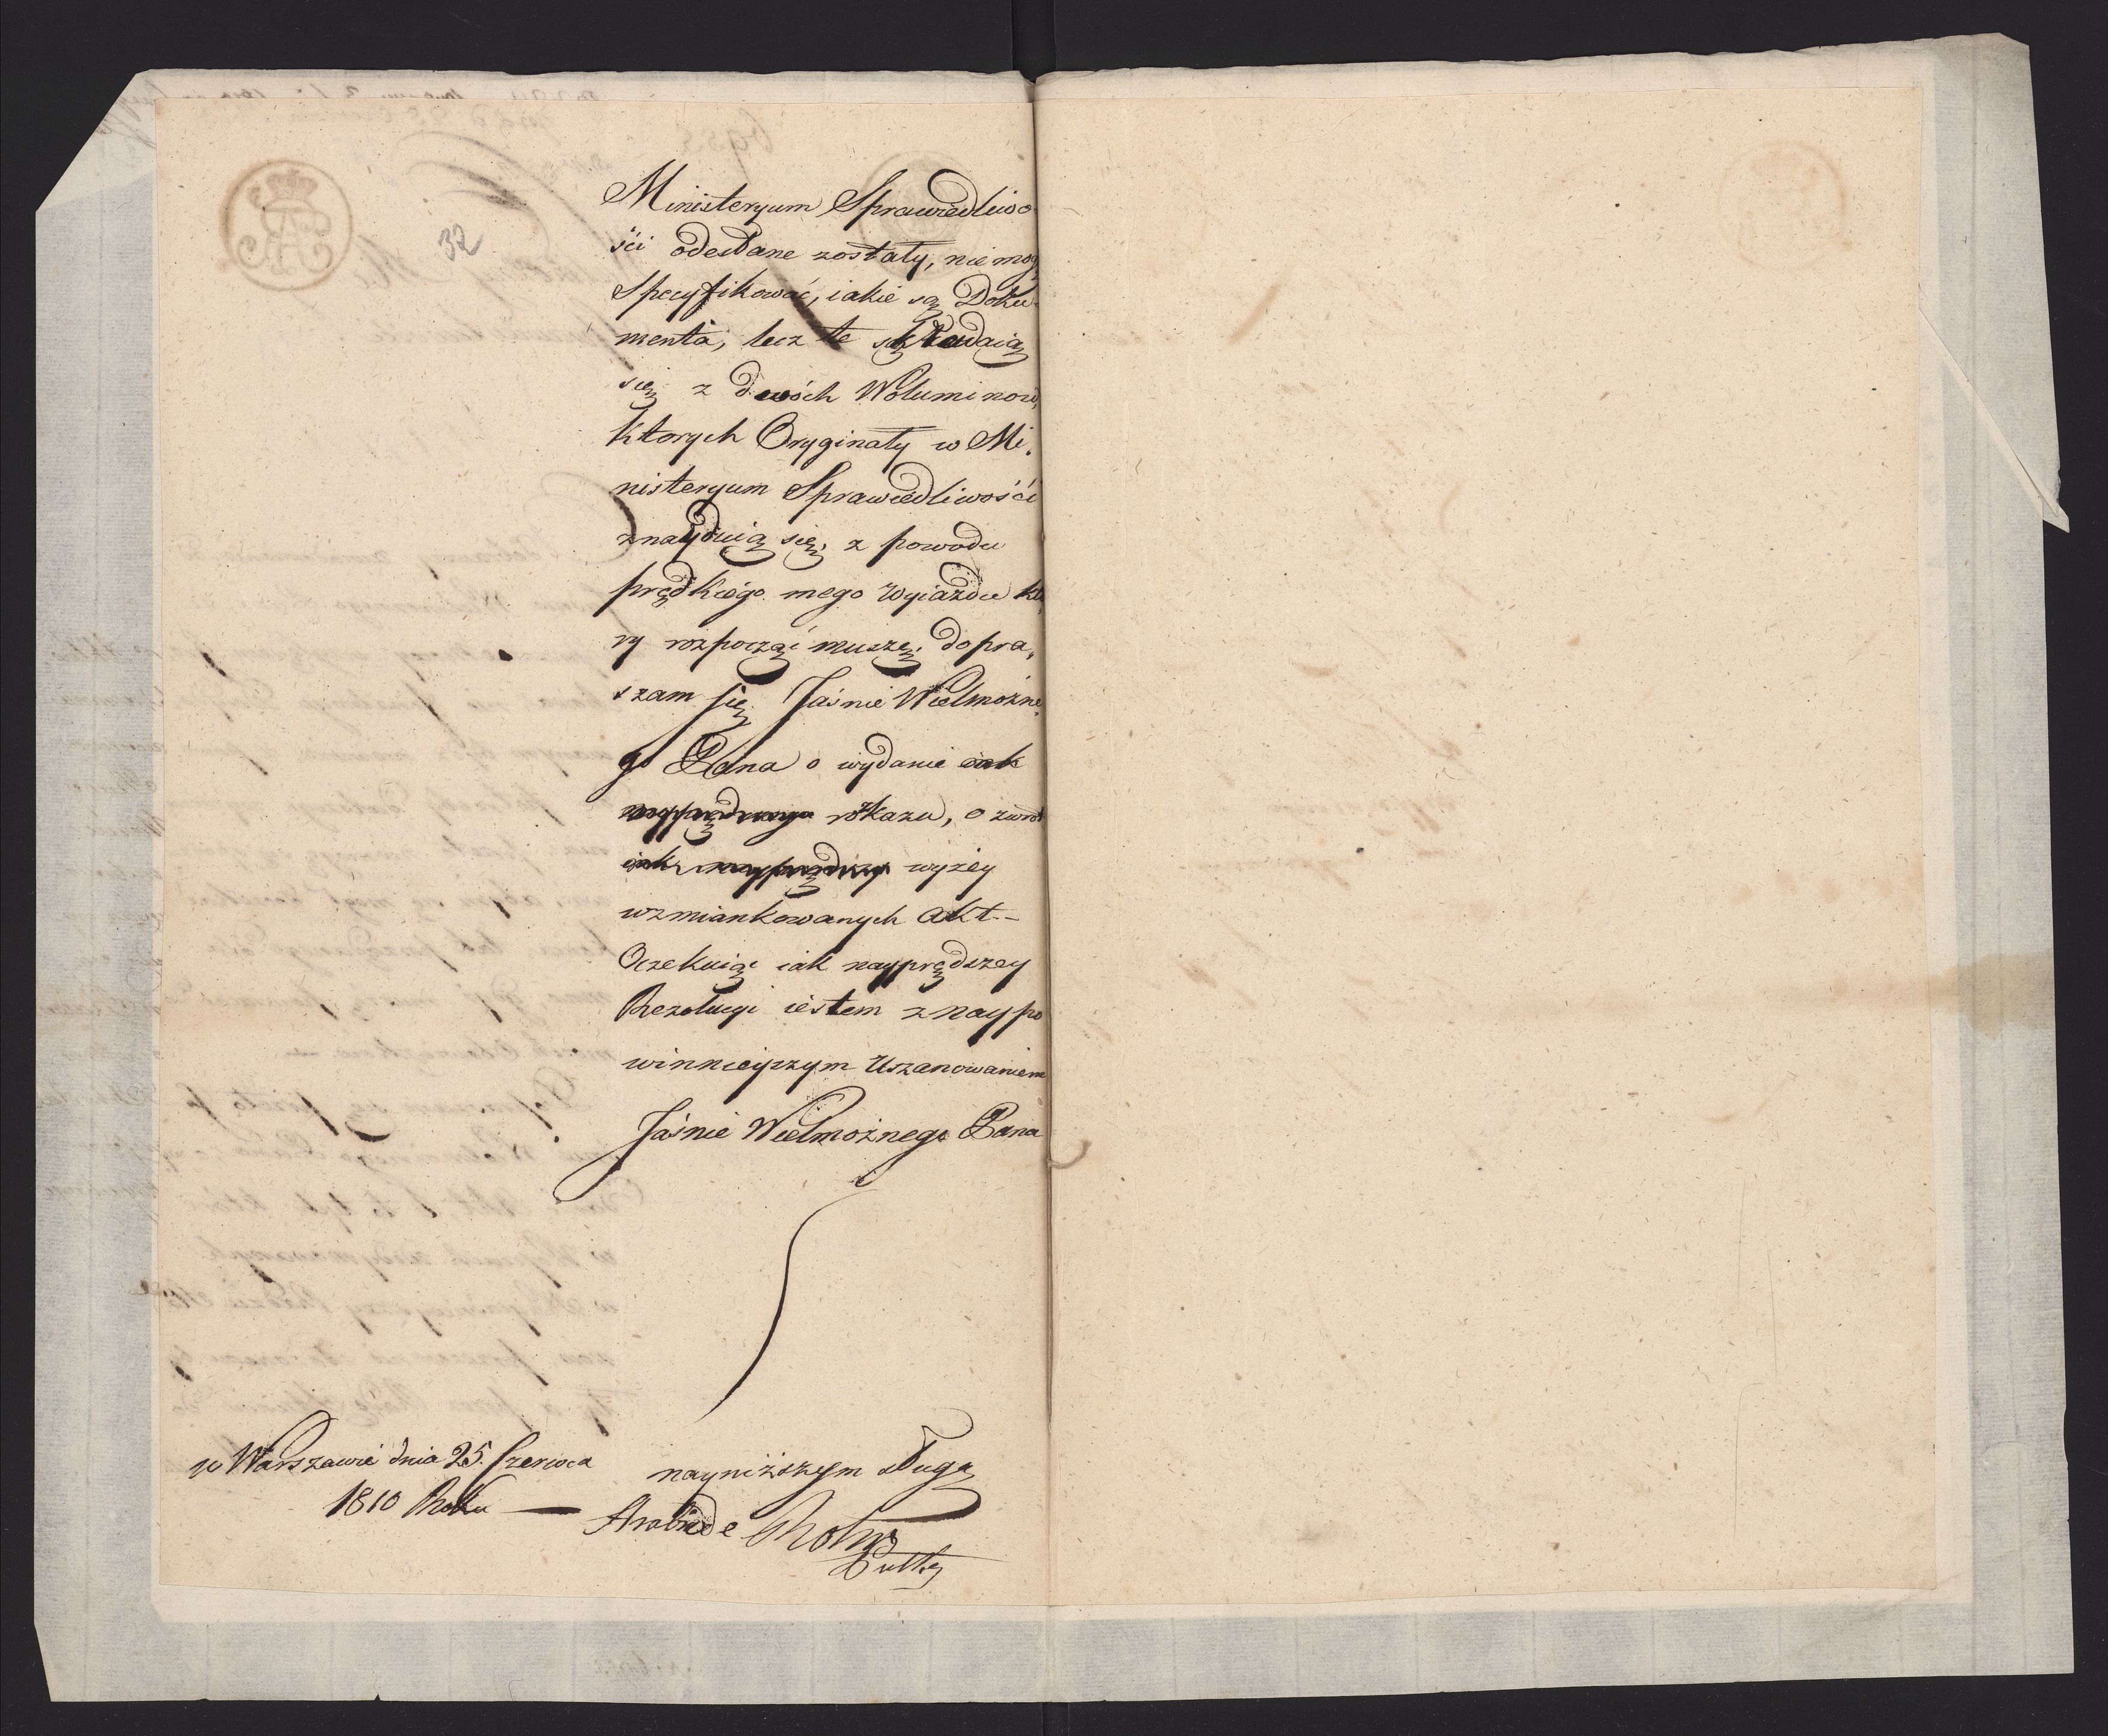 32
Ministeryum Sprawiedliwo
ści odesłane zostały, nie mogę
Specyfikować, iakie są Doku
menta, lecz te składaią
się z dwóch Woluminow,
ktorych Oryginały w Mi,
nisteryum Sprawiedliwości
znayduią się, z powodu
prędkiego mego Wyiazdu kto,
ry rozpocząć muszę, dopra,
szam się Jaśnie Wielmożne,
go Pana o wydanie iak
nayprędszego rozkazu, o zwrot
iak nayprędszy wyżey
wzmiankowanych Akt.-
Oczekuiąc iak nayprędszey
Rezolucyi iestem z naypo
winnieyszym Uszanowaniem
Jaśnie Wielmożnego Pana
w Warszawie dnia 25. Czerwca
1810 Roku —
nayniższym sługą